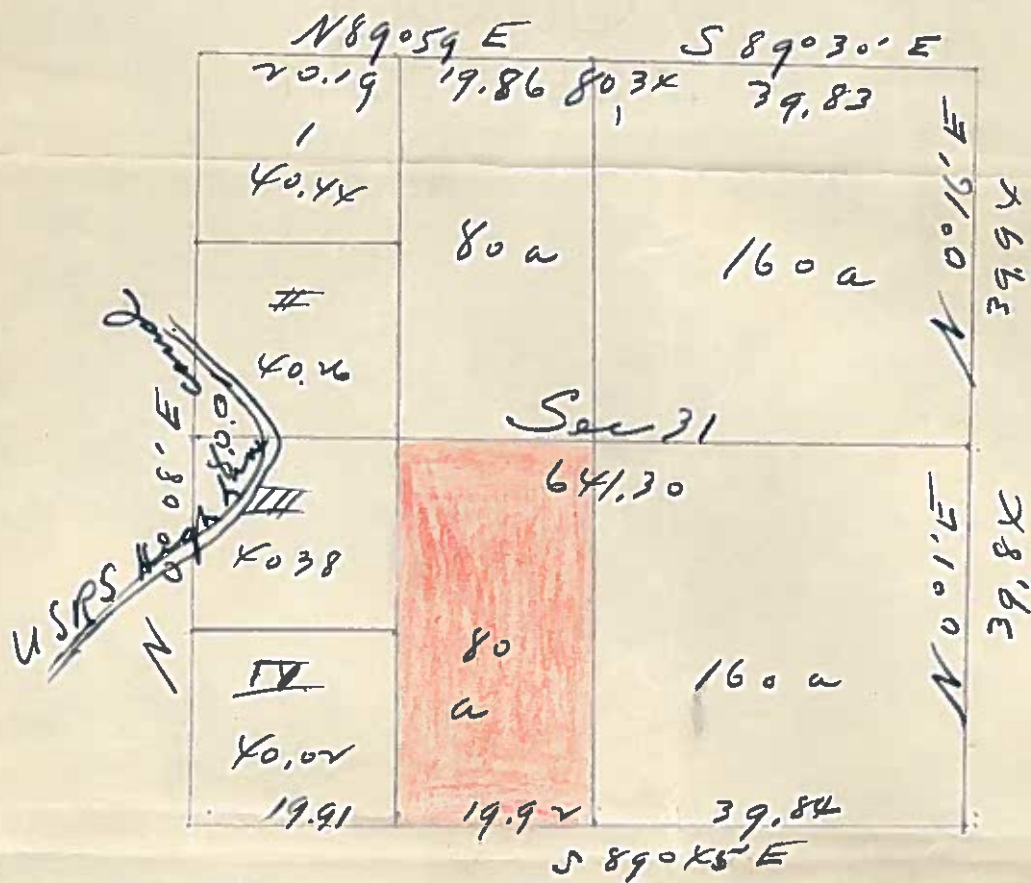 N 89°59 E
S 89°30' E
20.19
19.86
80,34
39.83
1
40.44
80 a
160 a
N 0°16' E
39 64
II
40.26
Sec 31
641,30
USRS High Line
Canal
III
4038
N 0°1' E
39,84
80
a
160 a
IV
40,02
19.91
19.92
39,84
S 89°45 E